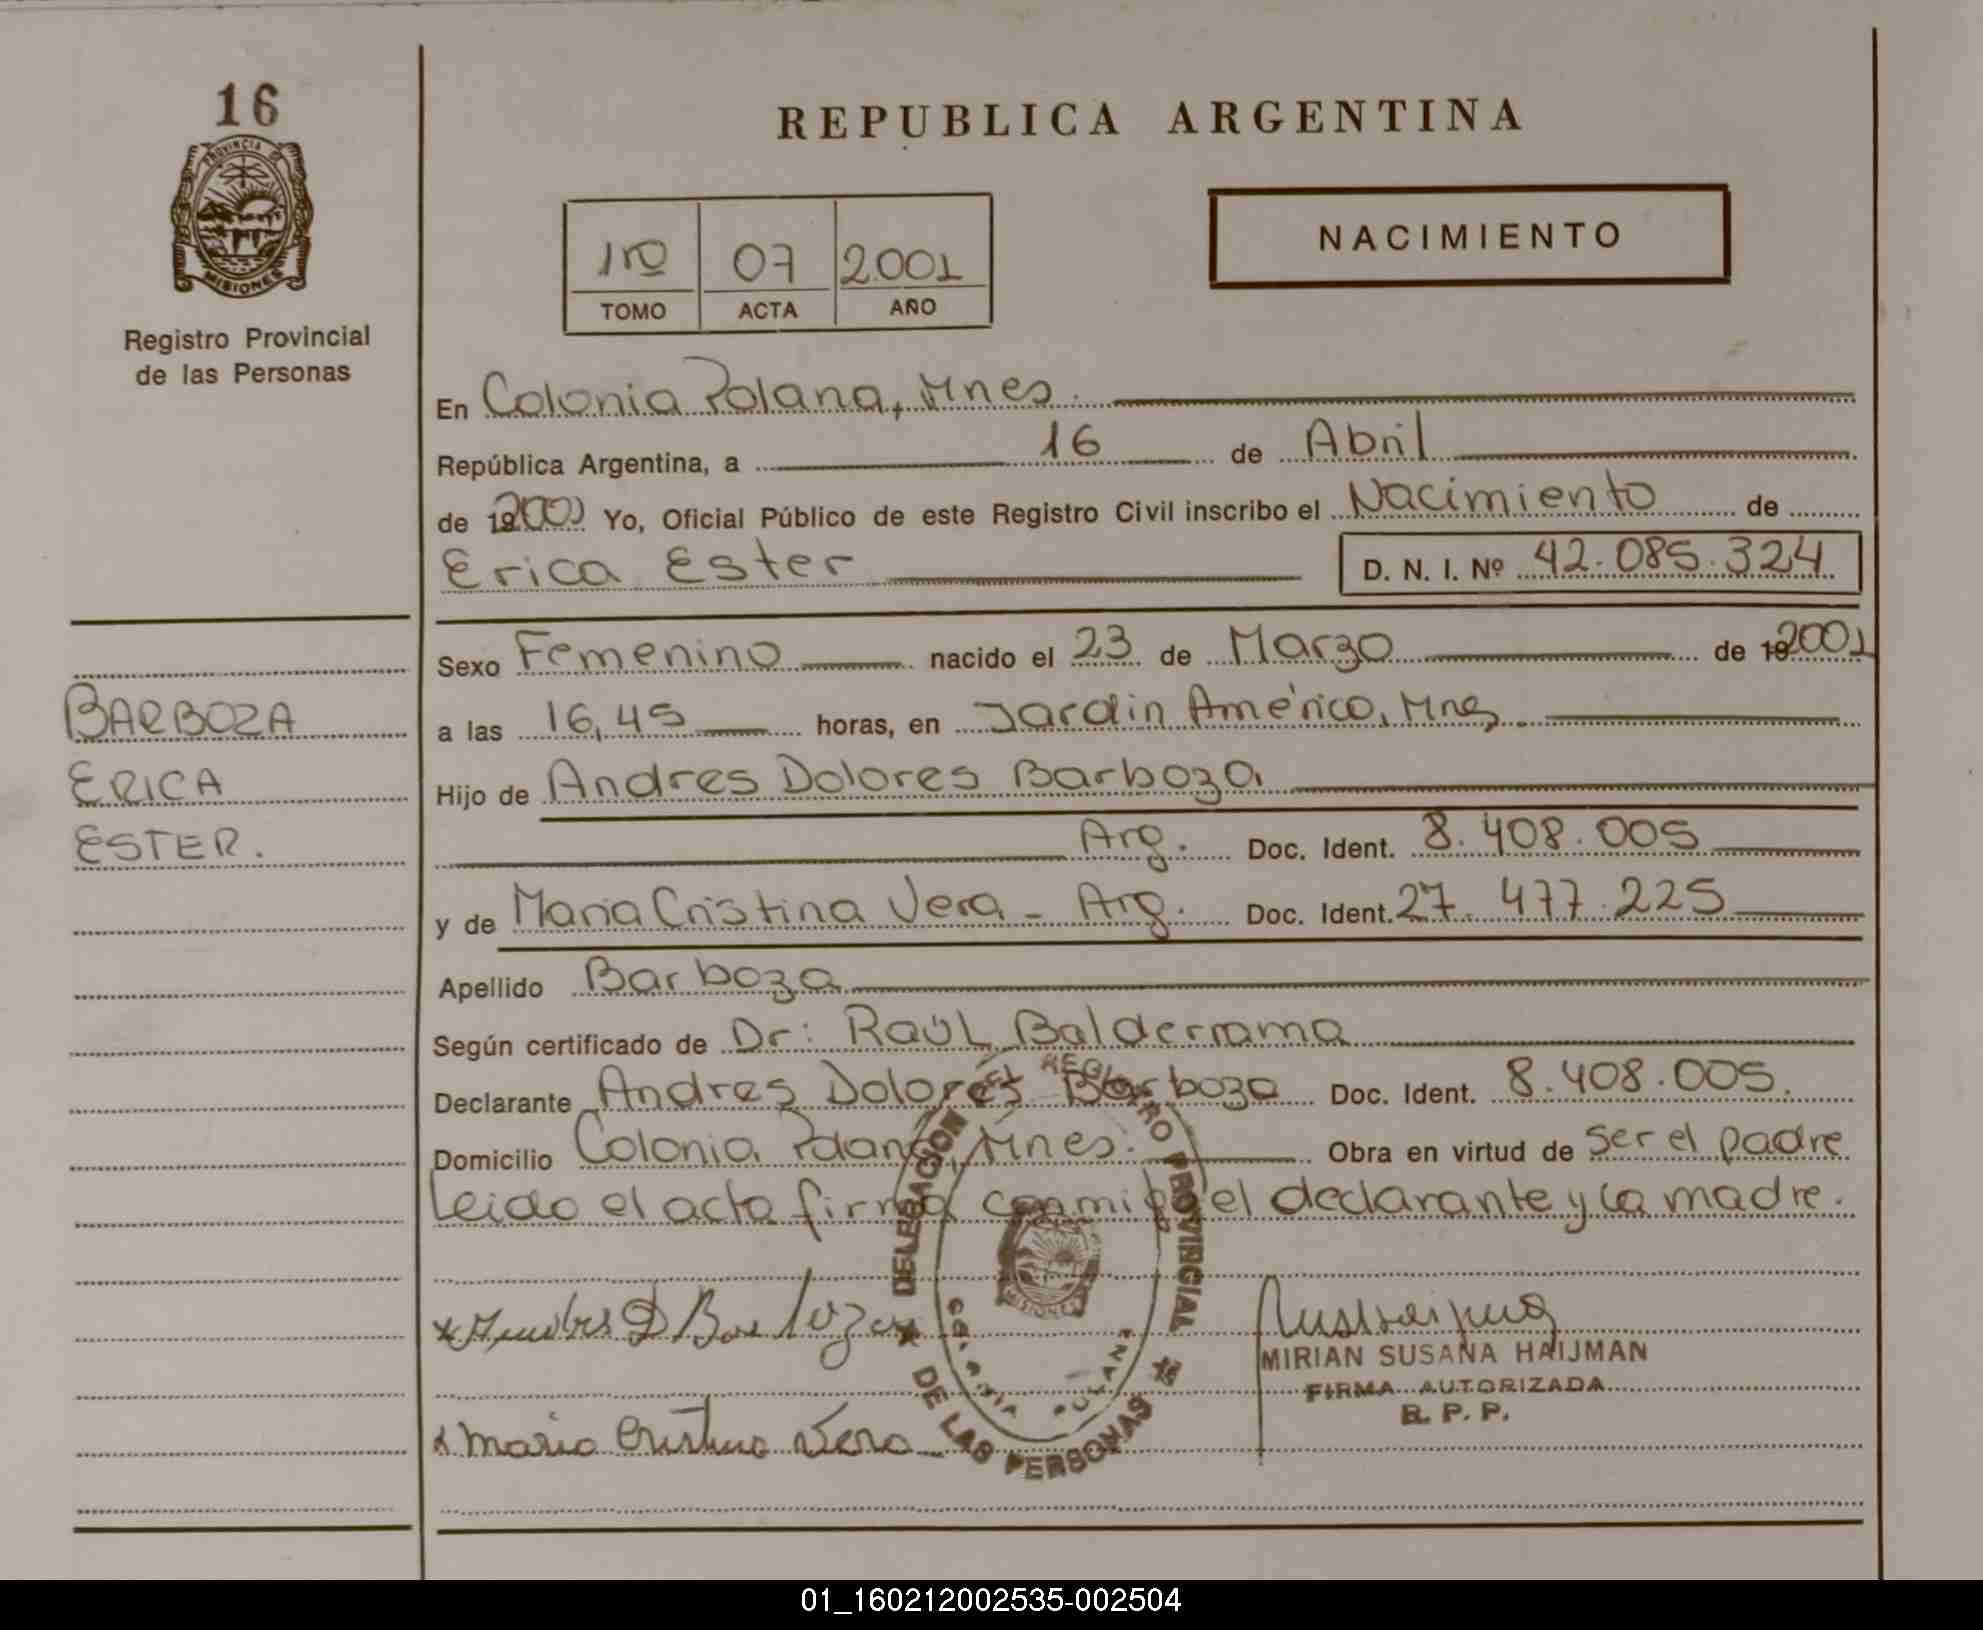 16
PROVINCIA DE
MISIONES
Registro Provincial
de las Personas
REPUBLICA ARGENTINA
1ro 07 2.001
TOMO ACTA AÑO
NACIMIENTO
En Colonia Polana, Mnes.
República Argentina, a 16 de Abril
de 192001 Yo, Oficial Público de este Registro Civil inscribo el Nacimiento de
Erica Ester D. N. I. Nº 42.085.324
Sexo Femenino nacido el 23 de Marzo de 192001
a las 16,45 horas, en Jardin América, Mnes.
Hijo de Andres Dolores Barboza
Arg. Doc. Ident. 8.408.005
y de Maria Cristina Vera - Arg. Doc. Ident. 27.477.225
Apellido Barboza
Según certificado de Dr: Raúl Balderrama
Declarante Andres Dolores Barboza Doc. Ident. 8.408.005.
Domicilio Colonia Polana, Mnes. Obra en virtud de ser el padre
Leido el acta firma conmigo el declarante y la madre.
BARBOZA
ERICA
ESTER.
DELEGACION DEL REGISTRO PROVINCIAL
DE LAS PERSONAS
COLONIA POLANA
MISIONES
Andres D Barboza
Maria Cristina Vera
MIRIAN SUSANA HAIJMAN
FIRMA AUTORIZADA
R. P. P.
01_160212002535-002504